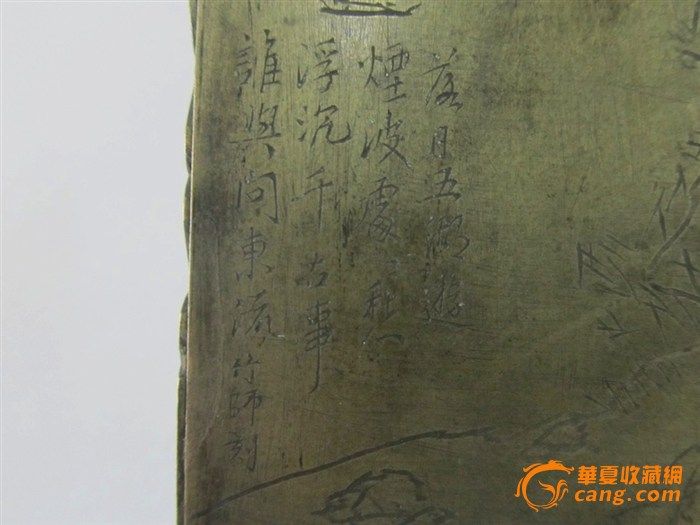 落日五湖遊
煙波處處愁
浮沉千古事
誰與問東流 竹師刻
華夏收藏網
cang.com